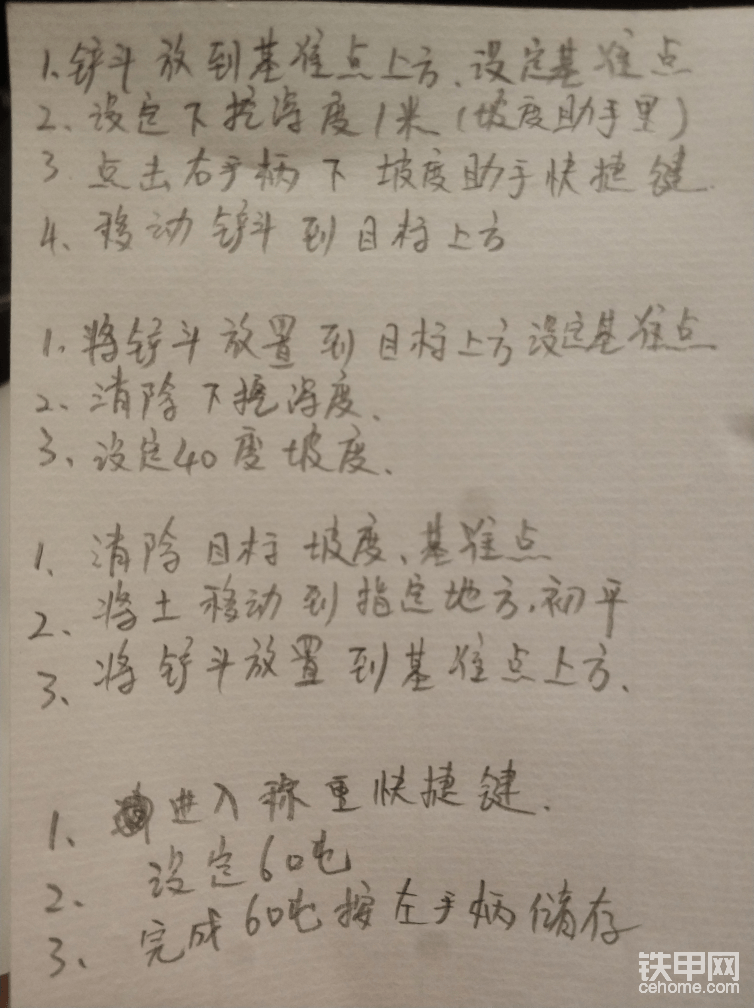 1.铲斗放到基准点上方、设定基准点
2、设定下挖深度1米(坡度助手里)
3 点击右手柄下坡度助手快捷键.
4、移动铲斗到目标上方
1、将铲斗放置到目标上方设定基准点
2、消除下挖深度、
3、设定40度坡度、
1、消除目标坡度、基准点
2、将土移动到指定地方,初平
3、将铲斗放置到基准点上方、
1、进入称重快捷键、
2、设定60吨
3、完成60吨按左手柄储存
铁甲网
cehome.com